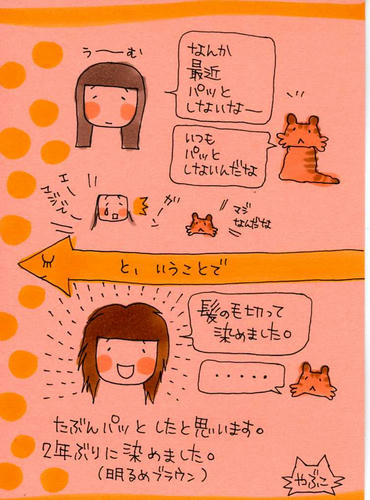 うーーむ
なんか
最近
パッと
しないなー
いつも
パッと
しないんだな
エー
マジでー
ガーン
マジ
なんだな
と、いうことで
髪の毛切って
染めました。
・・・・・
たぶんパッとしたと思います。
2年ぶりに染めました。
(明るめブラウン)
やぶこ